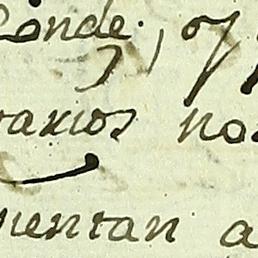 Conde, oy
raxios nos
mentan a